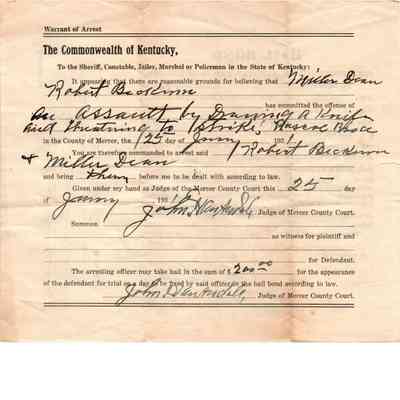 Warrant of Arrest
The Commonwealth of Kentucky,
To the Sheriff, Constable, Jailer, Marshal or Policeman in the State of Kentucky:
It appearing that there are reasonable grounds for believing that Miller Dean
Robert Beckum
has committed the offense of
an assault by Drawing a Knife
and threatning to strike,
in the County of Mercer, the 25 day of 193
You are therefore commanded to arrest said Robert Beckum
& Miller Dean
and bring them before me to be dealt with according to law.
Given under my hand as Judge of the Mercer County Court this 25 day
of 193 John Judge of Mercer County Court.
Summon
as witness for plaintiff and
for Defendant.
The arresting officer may take bail in the sum of $200.00 for the appearance
of the defendant for trial on a day to be fixed by said officer in the bail bond according to law.
John Judge of Mercer County Court.